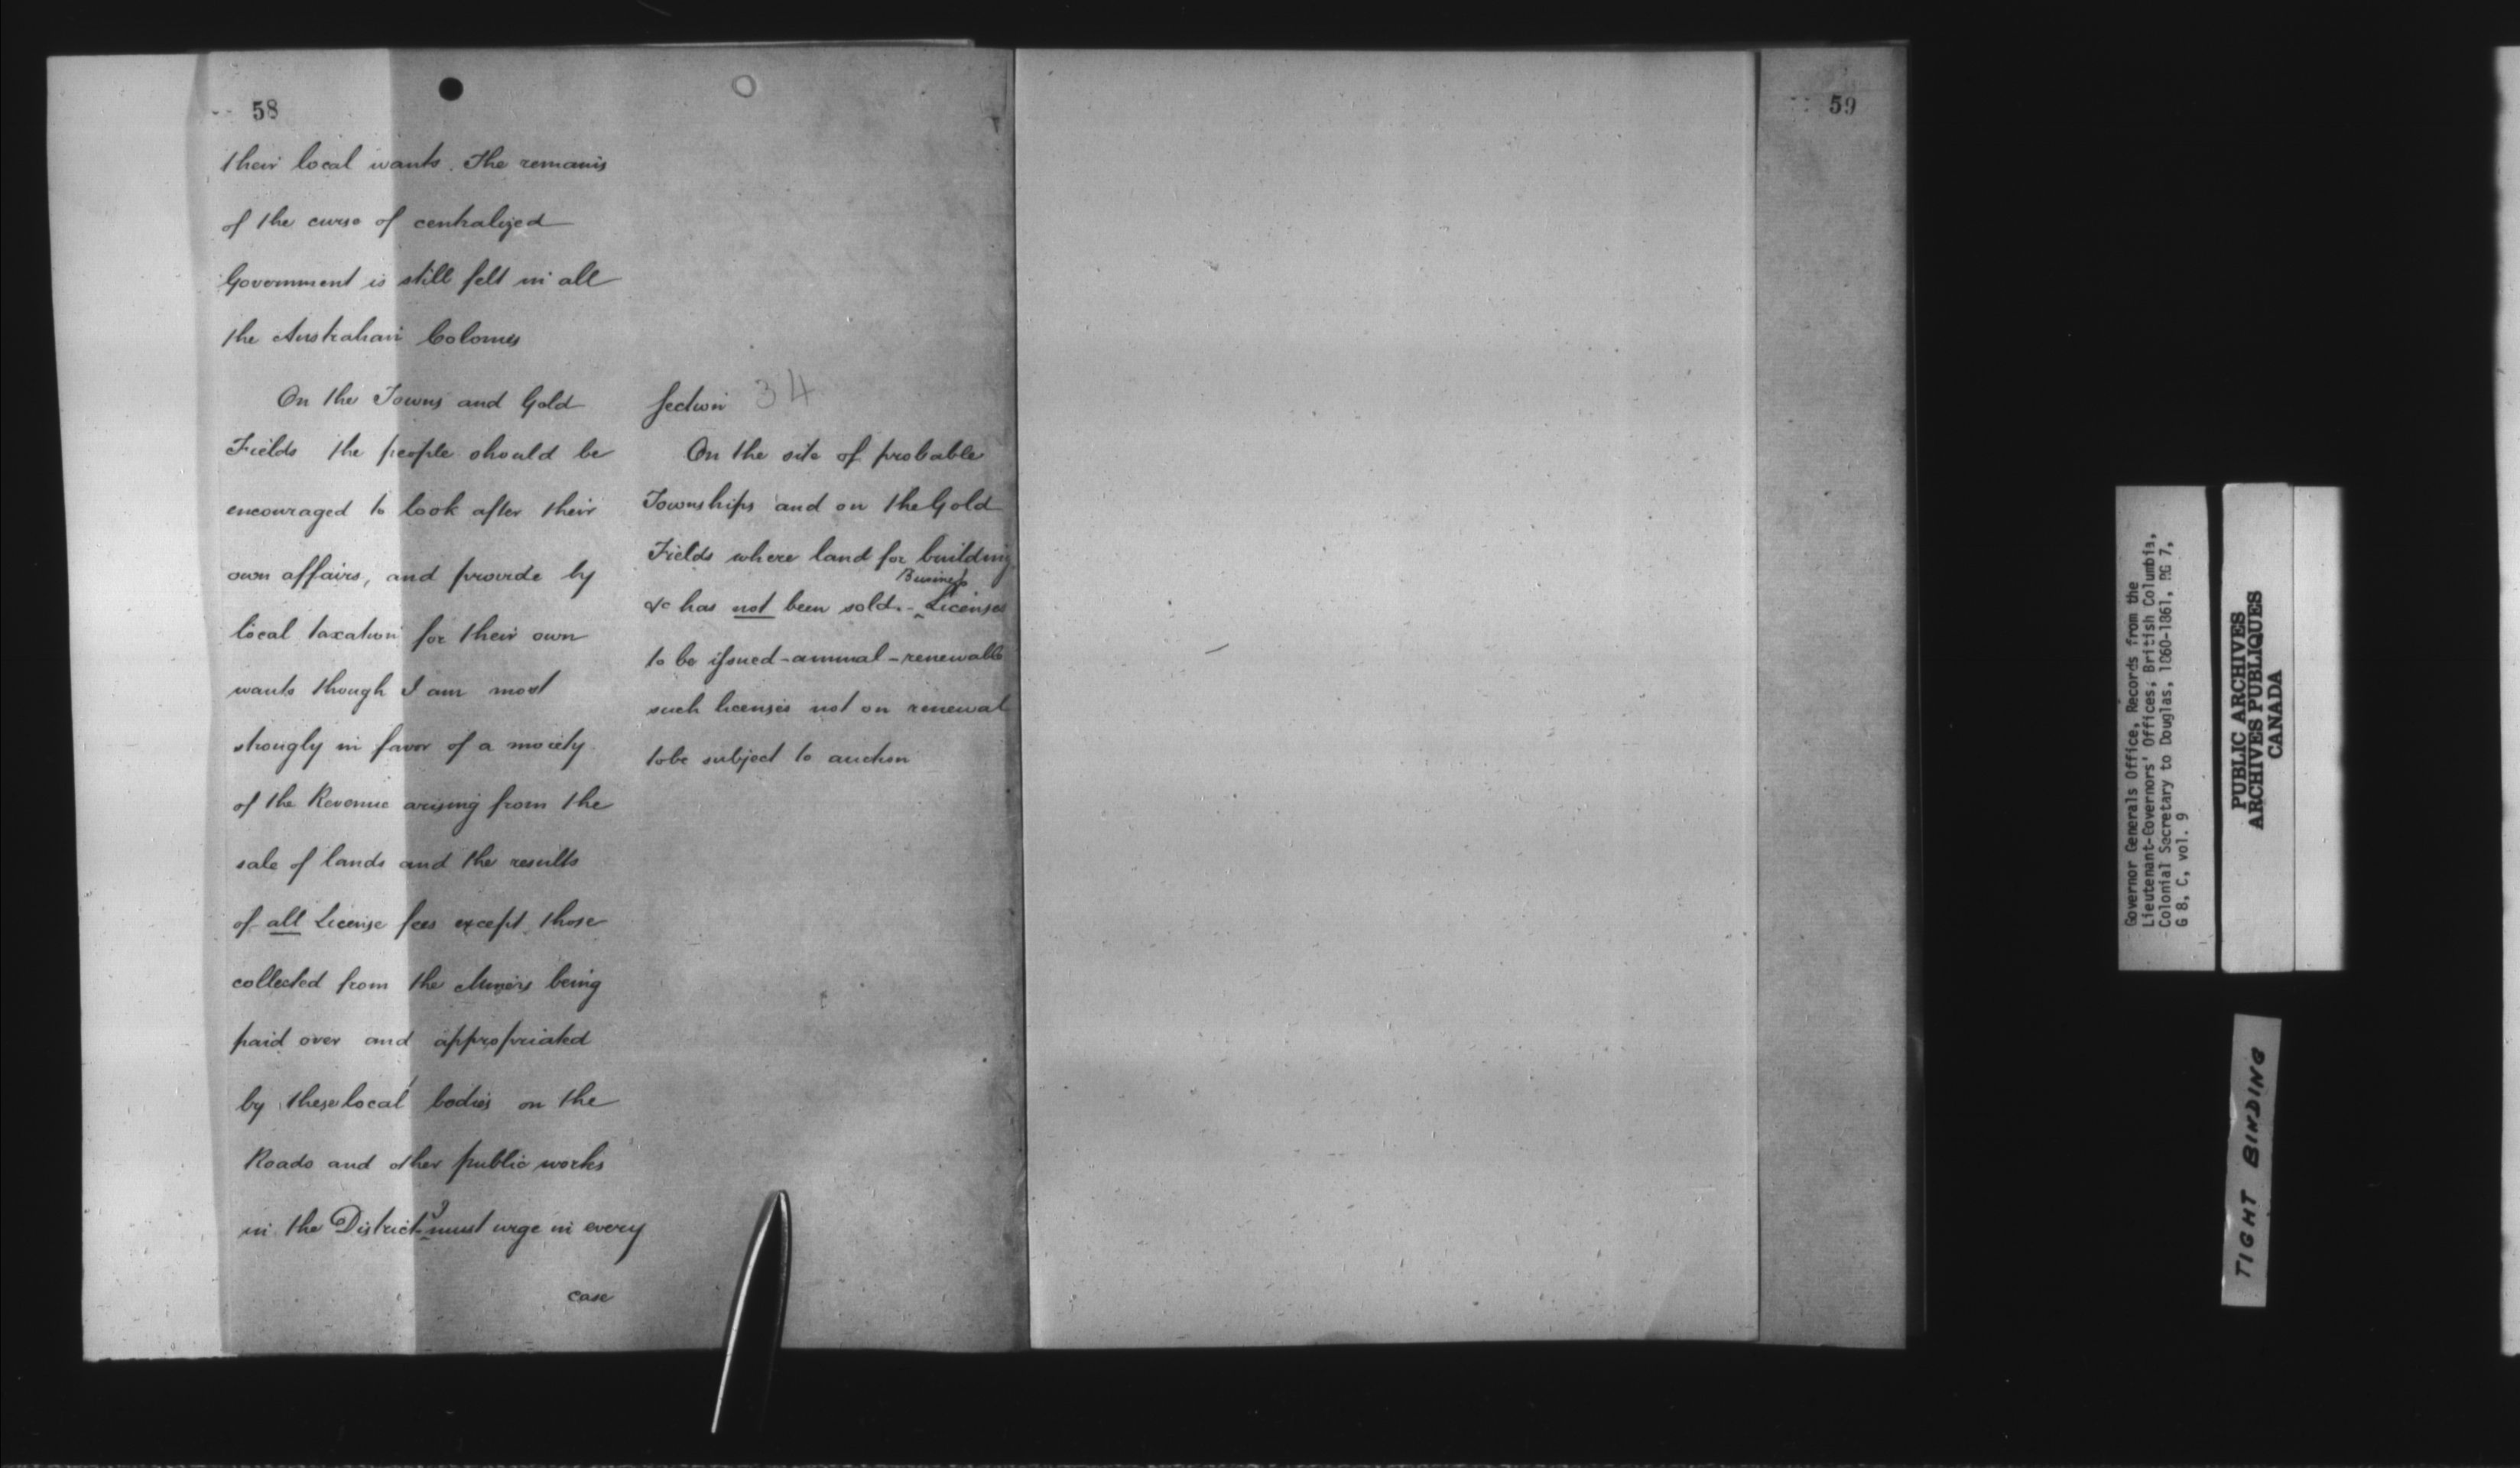 58
their local wants. The remains
of the curse of centralized
Government is still felt in all
the Australian Colonies
On the Towns and Gold
Fields the people should be
encouraged to look after their
own affairs, and provide by
local taxation for their own
wants though I am most
strongly in favor of a moiety
of the Revenue arising from the
sale of lands and the results
of all License fees except those
collected from the Miners being
paid over and appropriated
by these local bodies on the
Roads and other public works
in the District I must urge in every
case
Section 34
On the site of probable
Townships and on the Gold
Fields where land for building
&c has not been sold. - Business Licenses
to be issued - annual - renewable
such licenses not on renewal
to be subject to auction
59
Governor Generals Office, Records from the
Lieutenant-Governors' Offices; British Columbia,
Colonial Secretary to Douglas, 1860-1861, RG 7,
G 8, C, vol. 9
PUBLIC ARCHIVES
ARCHIVES PUBLIQUES
CANADA
TIGHT BINDING